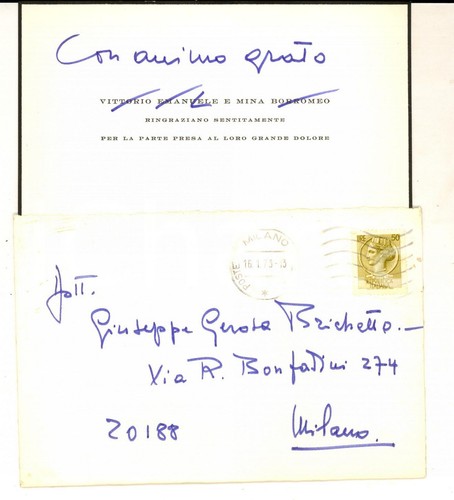 Con animo grato
VITTORIO EMANUELE E MINA BORROMEO
RINGRAZIANO SENTITAMENTE
PER LA PARTE PRESA AL LORO GRANDE DOLORE
MILANO
POSTE
LIRE 50
Dott.
Giuseppe Gerosa Brichetto.—
Via R. Bonfadini 274
20188
Milano.